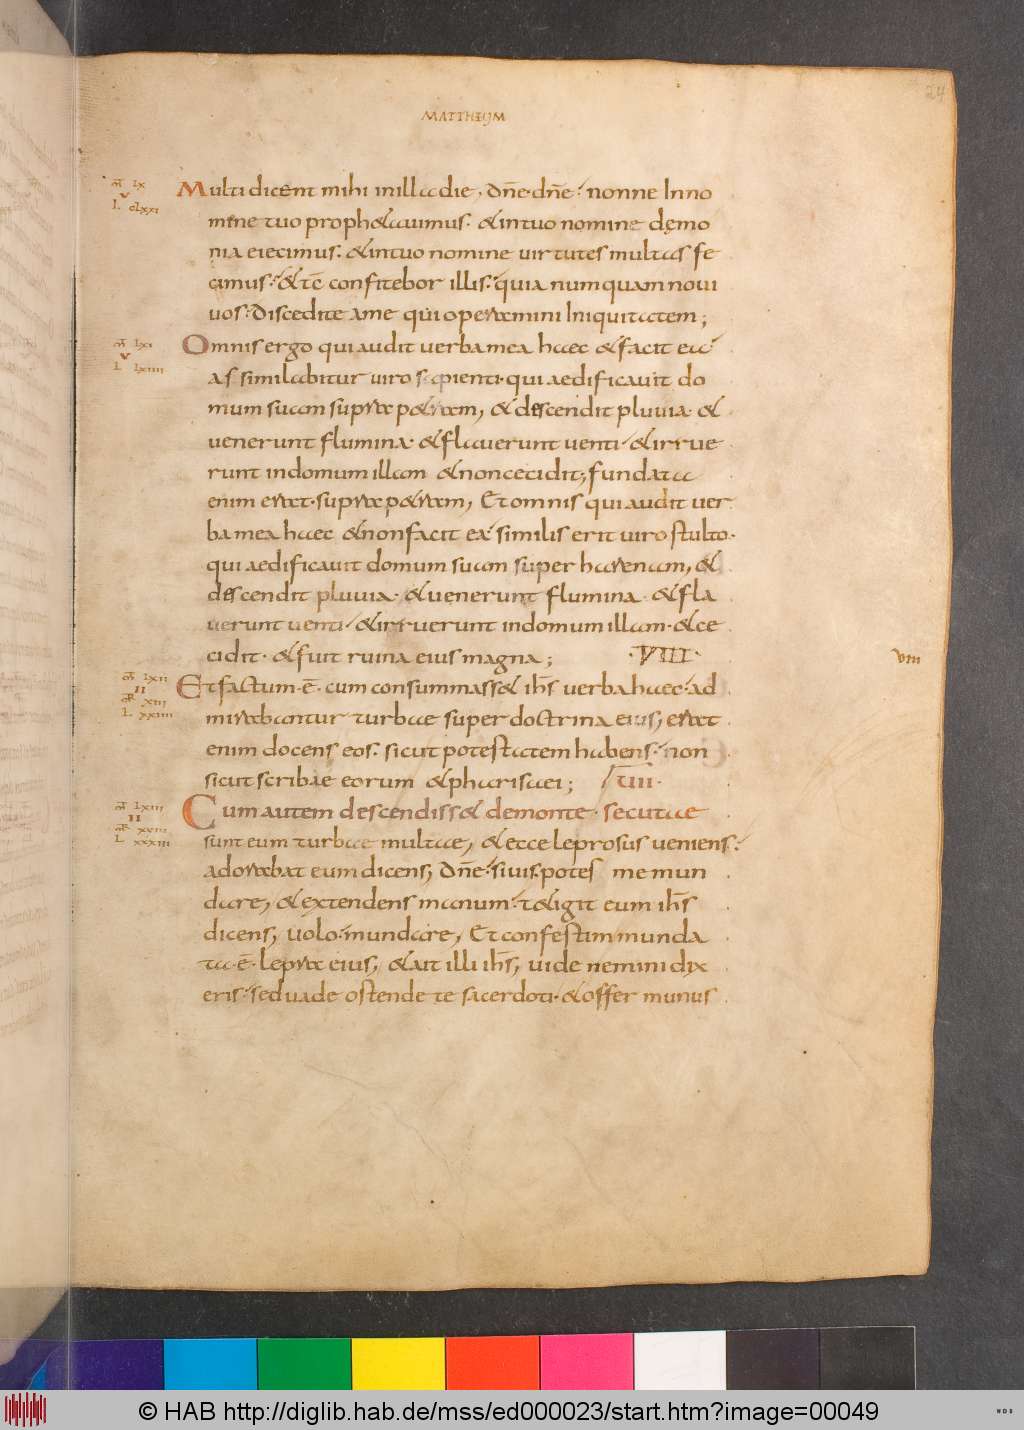 24
MATTHEUM
m̅ lx
v
l. clxxi
Multi dicent mihi in illa die, dn̅e dn̅e nonne in no
mine tuo prophetavimus. & in tuo nomine dęmo
nia eiecimus. & in tuo nomine virtutes multas fe
cimus. & tc̅ confitebor illis. quia numquam novi
vos. Discedite a me qui operamini iniquitatem;
m̅ lxi
v
l. lxiiii
Omnis ergo qui audit verba mea haec & facit ea
as similabitur viro sapienti. qui aedificavit do
mum suam supra p&ram, & descendit pluvia &
venerunt flumina. & flaverunt venti & irrue
runt in domum illam & non cecidit; fundata
enim erat. supra p&ram, Et omnis qui audit ver
ba mea haec & non facit ea similis erit viro stulto.
qui aedificavit domum suam super harenam, &
descendit pluvia. & venerunt flumina. & fla
verunt venti & irruerunt in domum illam. & ce
cidit. & fuit ruina eius magna; ·VIII·
viii
m̅ lxii
ii
mr̅ xiii
l. xxiiii
Et factum. e̅. cum consummass& ih̅s verba haec. ad
mirabantur turbae super doctrina eius, erat
enim docens eos. sicut potestatem habens. non
sicut scribae eorum & pharisaei; VIII.
m̅ lxiii
ii
mr̅ xviii
l. xxxiii
Cum autem descendiss& de monte. secutae
sunt eum turbae multae, & ecce leprosus veniens.
adorabat eum dicens, dn̅e. si vis. potes me mun
dare, & extendens manum. t&igit eum ih̅s
dicens, volo. mundare, Et confestim munda
ta. e̅. lepra eius, & ait illi ih̅s, vide nemini dix
eris. sed vade ostende te sacerdoti. & offer munus
© HAB http://diglib.hab.de/mss/ed000023/start.htm?image=00049
WDB